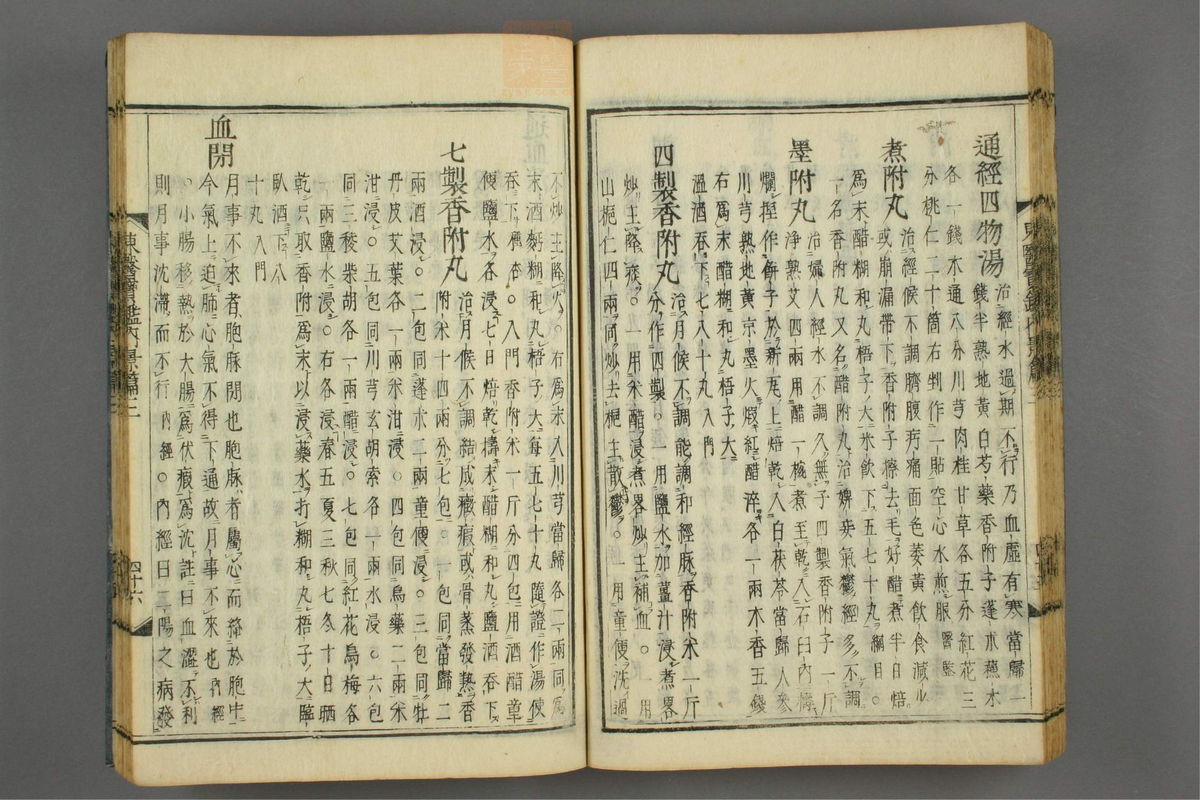 通經四物湯 治經水過期不行乃血虛有寒當歸一
各一錢木通八分川芎肉桂甘草各五分紅花三
分桃仁二十箇右剉作一貼空心水煎服 醫鑑
煮附丸 治經候不調臍腹㽲痛面色萎黃飲食減少
或崩漏帶下香附子擦去毛好醋煮半日焙
爲末醋糊和丸梧子大米飲下五七十丸 綱目○
一名香附丸又名醋附丸治婢妾氣鬱經多不調
墨附丸 治婦人經水不調久無子四製香附子一斤
淨熟艾四兩用醋一椀煮至乾入石臼內
爛捏作餠子於新瓦上焙乾入白茯苓當歸人參
川芎熟地黃京墨火煆紅醋淬各一兩木香五錢
右爲末醋糊和丸梧子大
溫酒吞下七八十丸 入門
四製香附丸 治月候不調能調和經脉香附米一斤
分作四製○一用鹽水加薑汁浸煮畧
炒主降痰○一用米醋浸煮畧炒主補血○一用
山梔仁四兩同炒去梔主散鬱○一用童便洗過
不炒主降火○右爲末入川芎當歸各二兩同爲
末酒麪糊和丸梧子大每五七十丸隨證作湯使
吞下 濟○入門香附米一斤分四包用酒醋童
便鹽水各浸七日焙乾擣末醋糊和丸鹽酒吞下
七製香附丸 治月候不調結成癥瘕或骨蒸發熱香
附米十四兩分七包一包同當歸二
兩酒浸○二包同蓬朮二兩童便浸○三包同牡
丹皮艾葉各一兩米泔浸○四包同烏藥二兩米
泔浸○五包同川芎玄胡索各一兩水浸○六包
同三稜柴胡各一兩醋浸○七包同紅花烏梅各
一兩鹽水浸○右各浸春五夏三秋七冬十日晒
乾只取香附爲末以浸藥水打糊和丸梧子大臨
臥酒下八
十丸 入門
血閉 月事不來者胞脉閉也胞脉者屬心而絡於胞中
今氣上迫肺心氣不得下通故月事不來也 內經
○小腸移熱於大腸爲伏瘕爲沈註曰血澀不利
則月事沈滯而不行 內經○內經曰二陽之病發
東醫寶鑑內景篇二
四十六